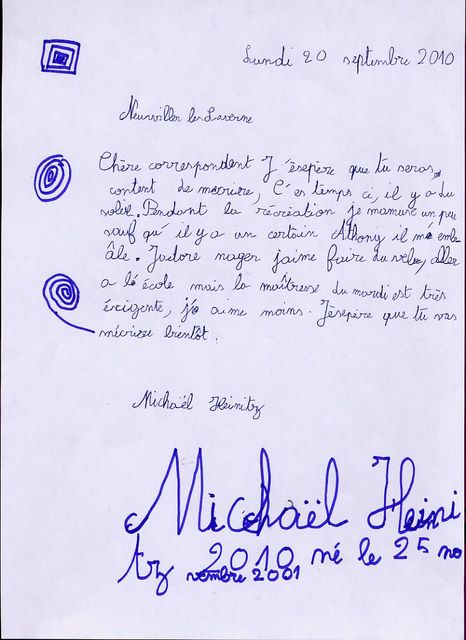 Lundi 20 septembre 2010
Neuwiller les Saverne
Chère correspondent J'ésepère que tu seras
content de mécrire, C'es temps ci, il y a du
soleil. Pendant la récréation je mamuse un peu
sauf qu'il y a un certain Athony il mé embe
âle. Jadore nager jaime faire du velo, aller
a lé école mais la maîtresse du mardi est très
éxigente, j'a aime moins. J'ésepère que tu vas
mécrire bientôt.
Michaël Heinitz
Michaël Heini
tz 2010 né le 25 no
vembre 2001